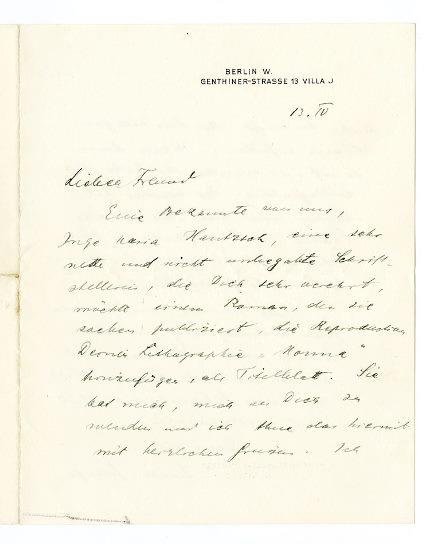 BERLIN W.
GENTHINER-STRASSE 13 VILLA J
13. IV
Lieber Freund
Eine Bekannte von uns,
Inge Maria Hantzsch, eine sehr
nette und nicht unbegabte Schrift-
stellerin, die Dich sehr verehrt,
möchte einem Roman, den sie
soeben publiziert, die Reproduction
Deiner Lithographie "Nonna"
hinzufügen, als Titelblatt. Sie
bat mich, mich an Dich zu
wenden und ich thue das hiermit
mit herzlichen Grüssen. Ich